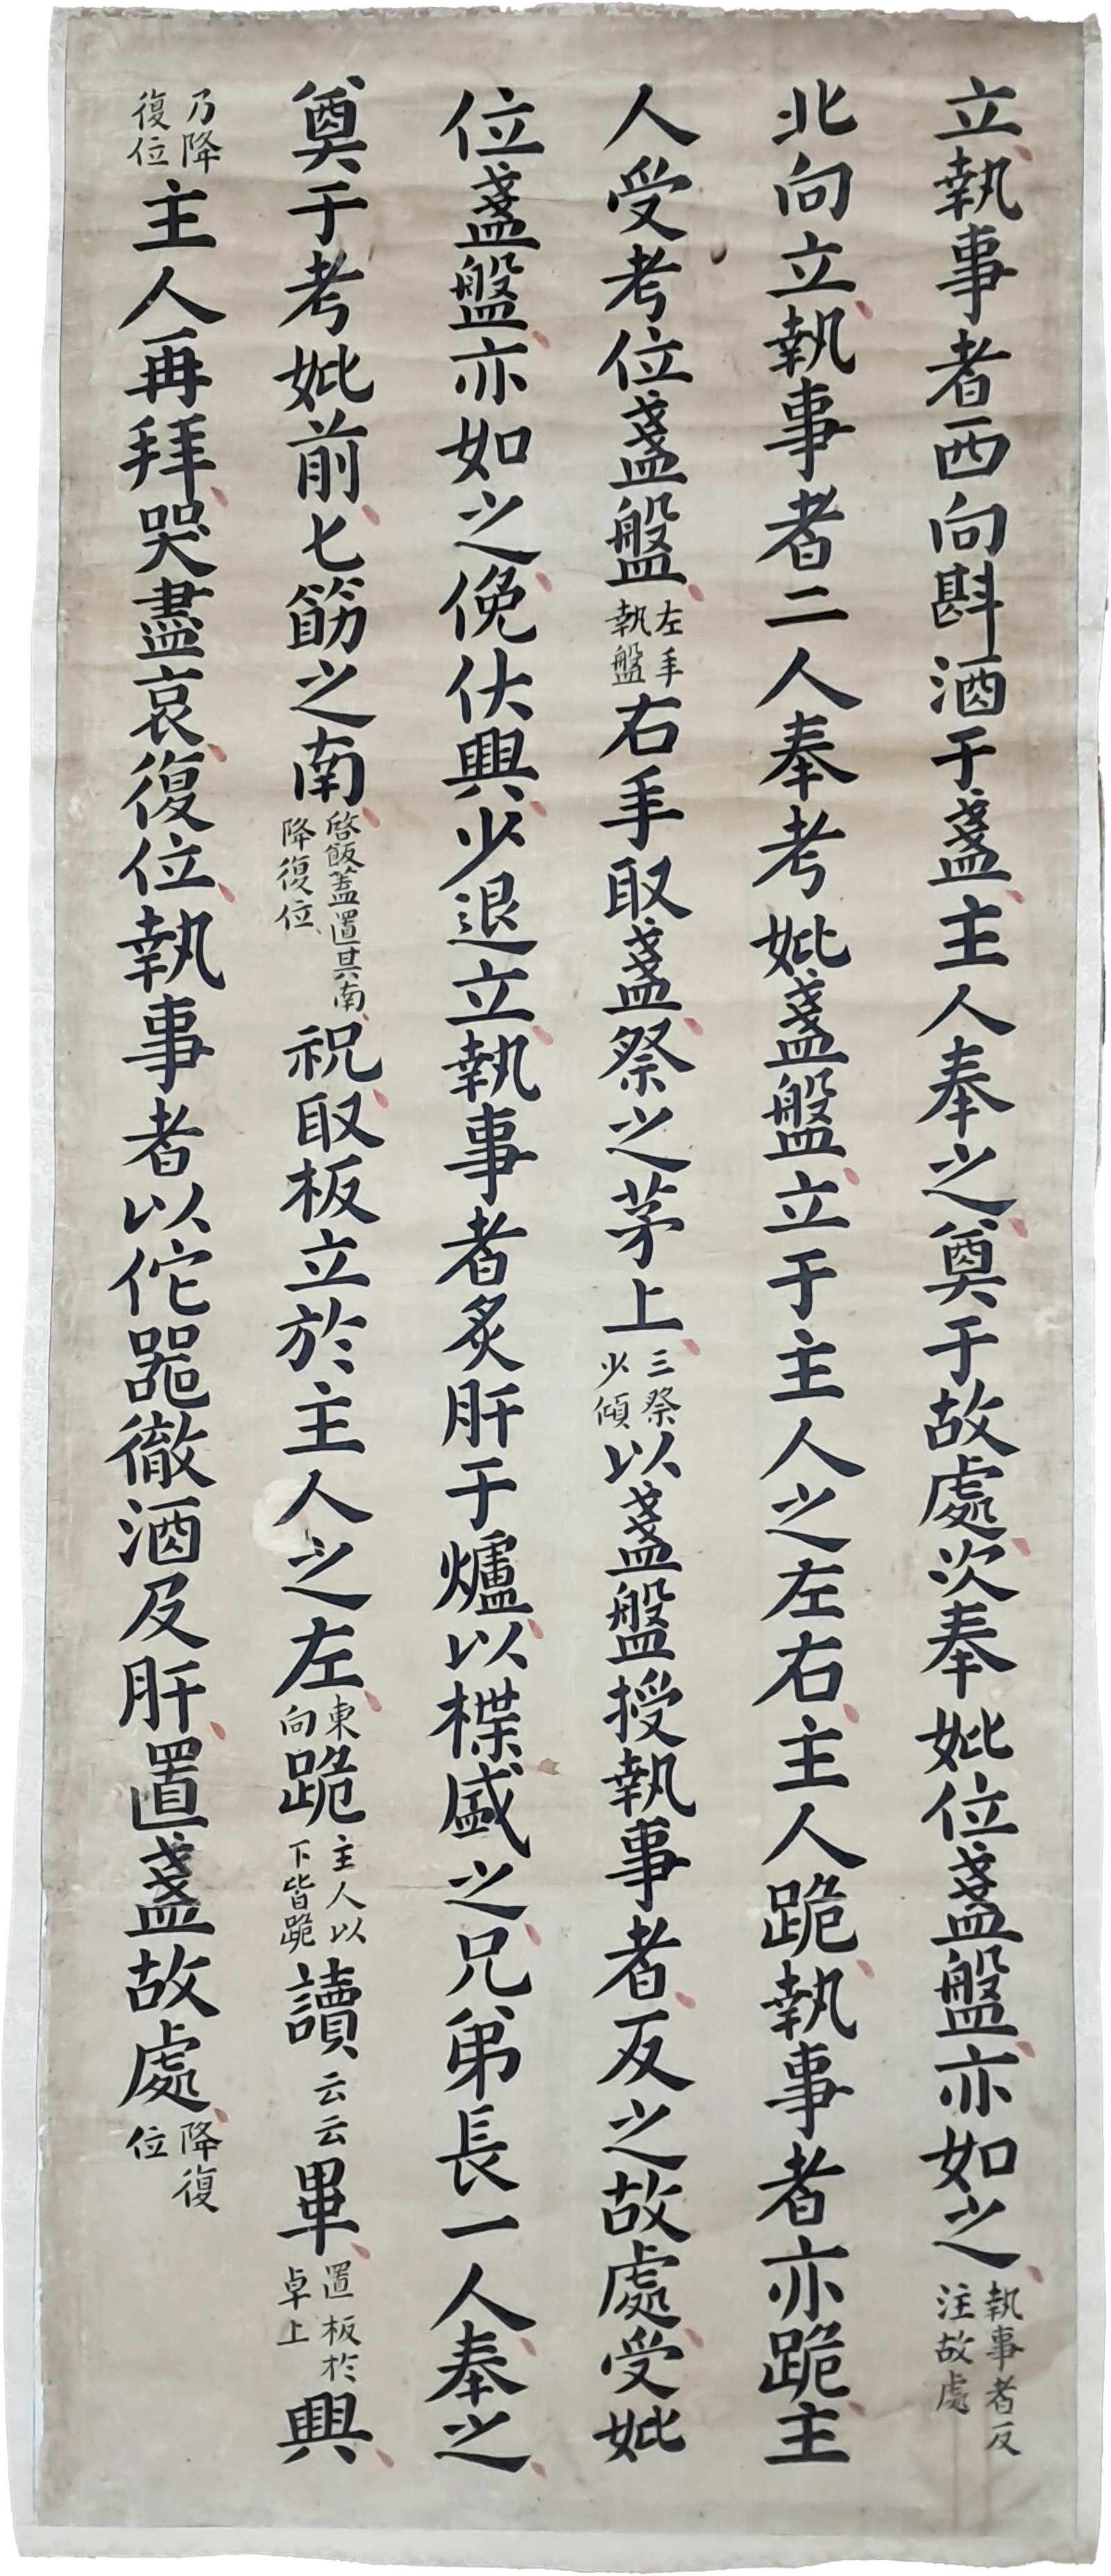 立執事者西向斟酒于盞主人奉之奠于故處次奉妣位盞盤亦如之執事者反注故處
北向立執事者二人奉考妣盞盤立于主人之左右主人跪執事者亦跪主
人受考位盞盤左手執盤右手取盞祭之茅上三祭少傾以盞盤授執事者反之故處受妣
位盞盤亦如之俛伏興少退立執事者炙肝于爐以楪盛之兄弟長一人奉之
奠于考妣前匕筯之南啓飯蓋置其南降復位祝取板立於主人之左東向跪主人以下皆跪讀云云畢置板於卓上興
乃降復位主人再拜哭盡哀復位執事者以佗器徹酒及肝置盞故處降復位